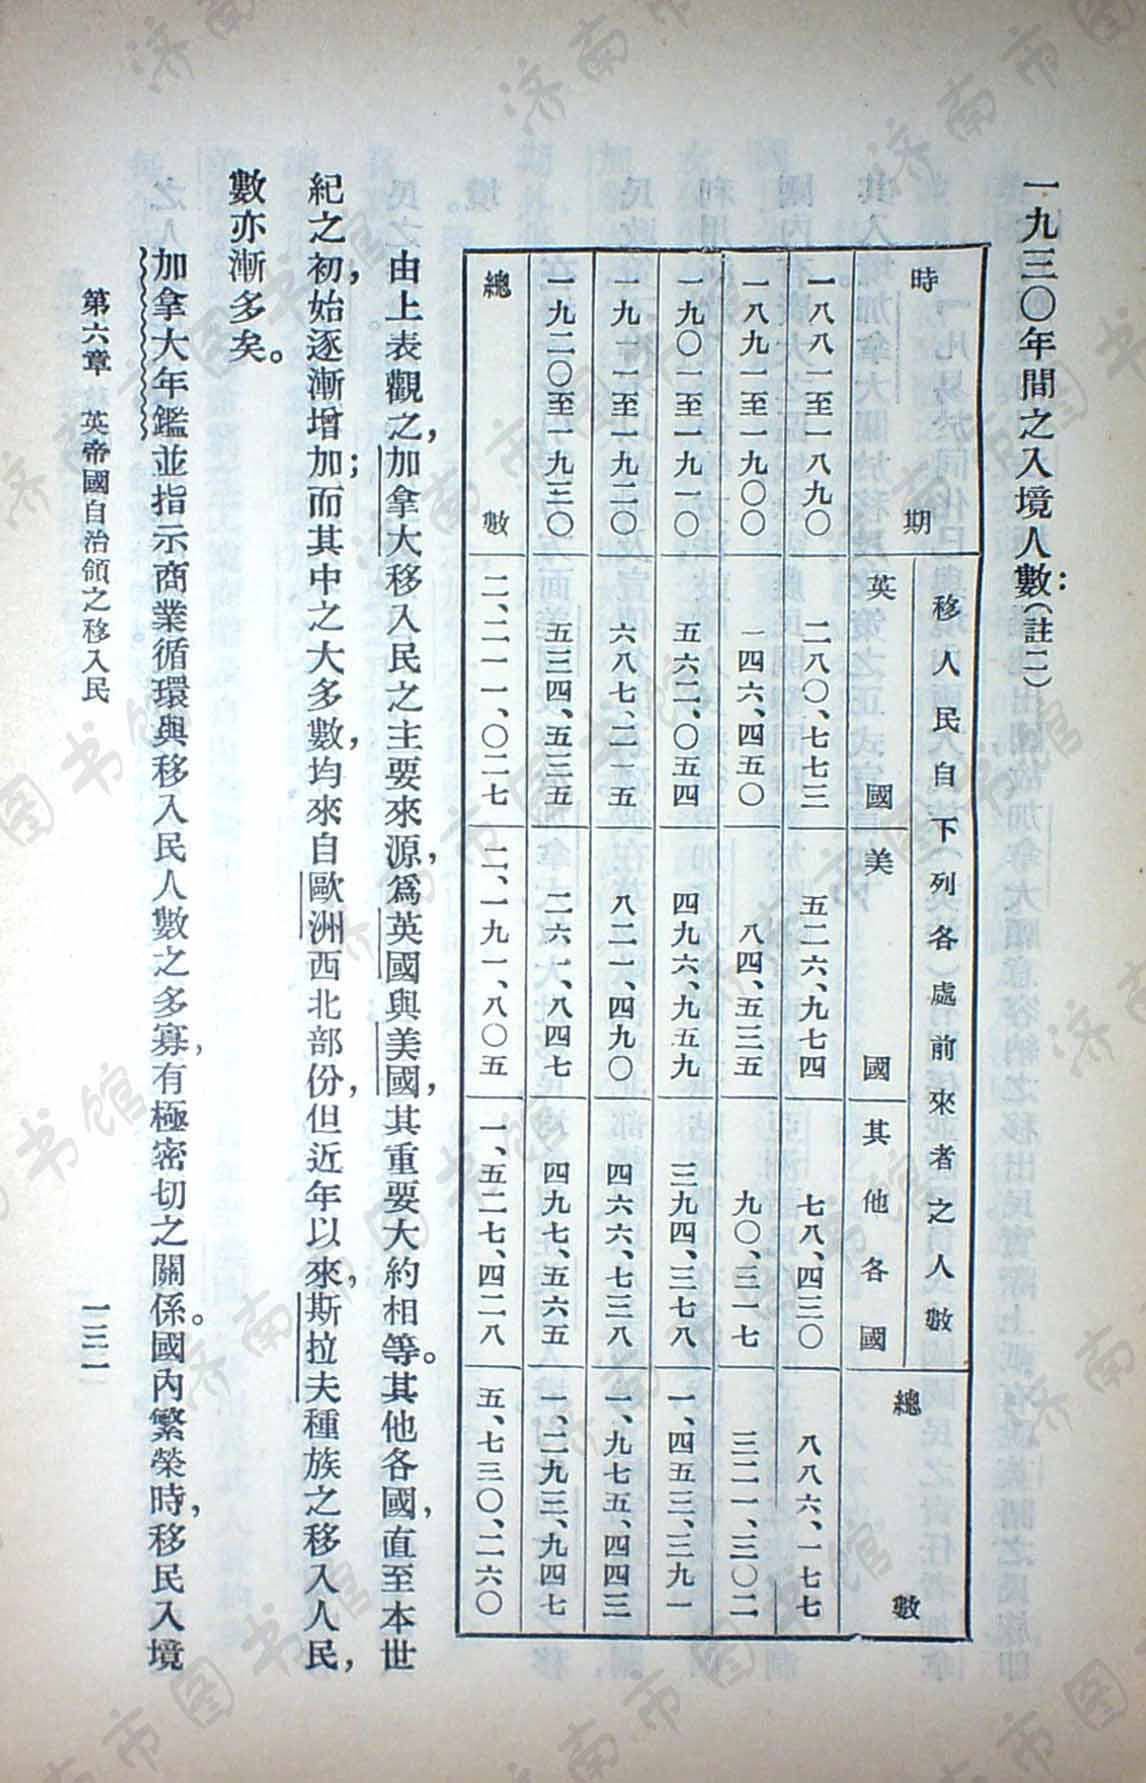 一九三〇年間之入境人數:(註二)
時期 移人民自下列各處前來者之人數 總數
英國 美國 其他各國
一八八一至一八九〇 二八〇、七七三 五二六、九七四 七八、四三〇 八八六、一七七
一八九一至一九〇〇 一四六、四五〇 八四、五三五 九〇、三一七 三二一、三〇二
一九〇一至一九一〇 五六二、〇五四 四九六、九五九 三九四、三七八 一、四五三、三九一
一九一一至一九二〇 六八七、二一五 八二一、四九〇 四六六、七三八 一、九七五、四四三
一九二〇至一九三〇 五三四、五三五 二六一、八四七 四九七、五六五 一、二九三、九四七
總數 二、二一一、〇二七 二、一九一、八〇五 一、五二七、四二八 五、七三〇、二六〇
由上表觀之,加拿大移入民之主要來源,爲英國與美國,其重要大約相等。其他各國,直至本世
紀之初,始逐漸增加;而其中之大多數,均來自歐洲西北部份,但近年以來,斯拉夫種族之移入人民,
數亦漸多矣。
加拿大年鑑並指示商業循環與移入民人數之多寡,有極密切之關係。國內繁榮時,移民入境
第六章 英帝國自治領之移入民
一三一